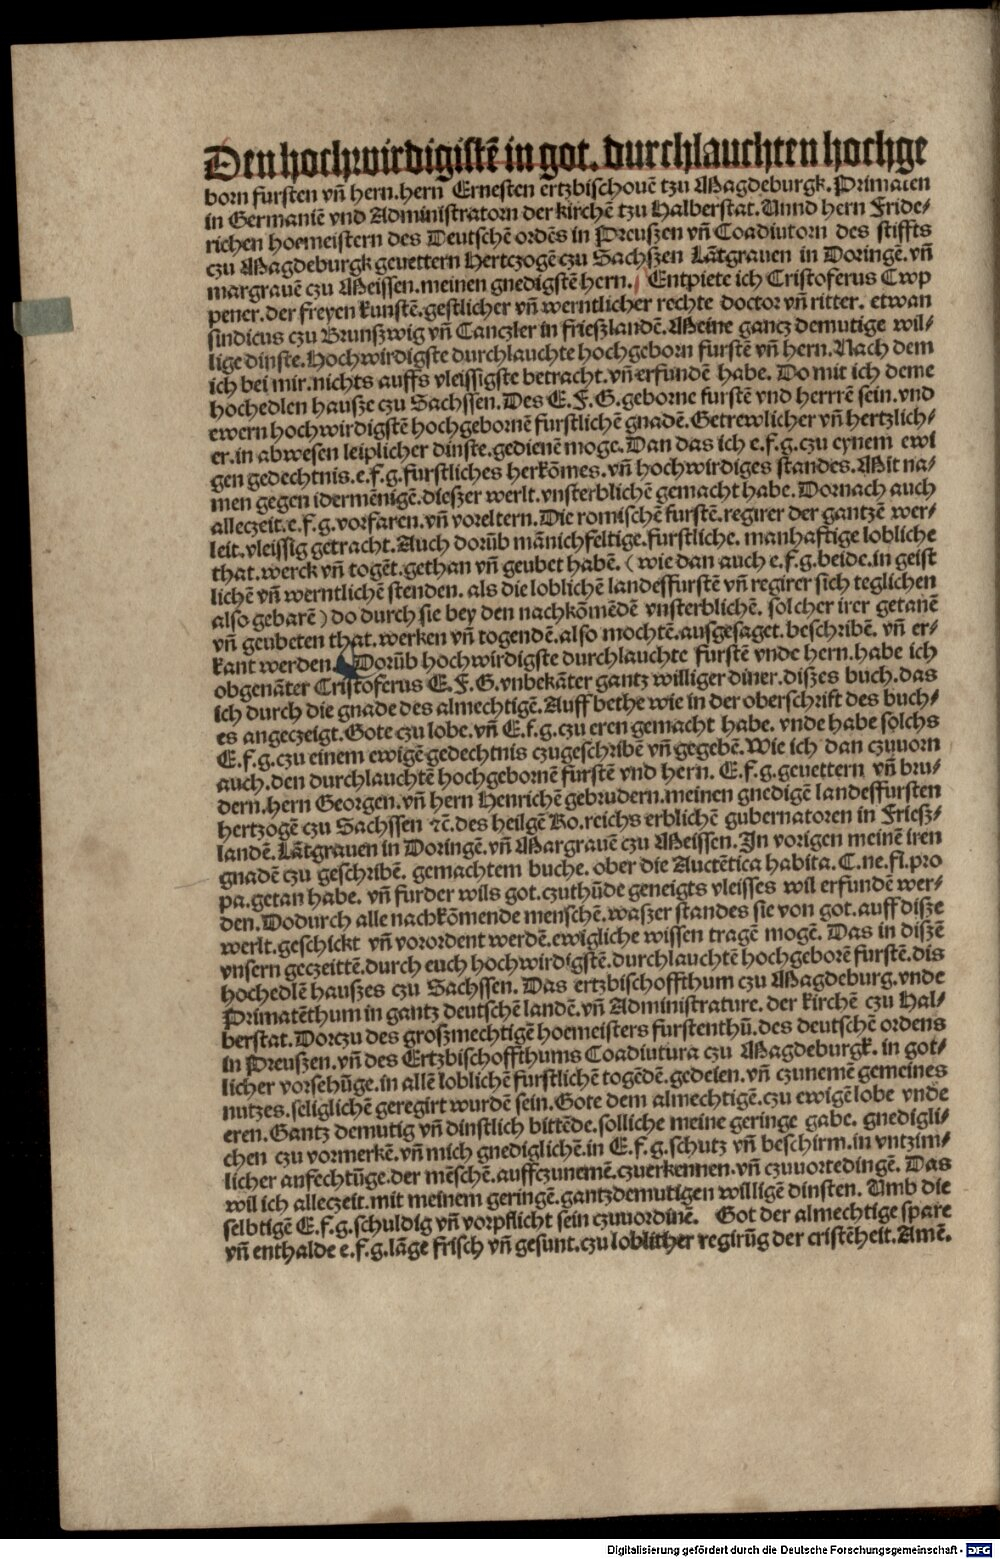 Den hochwirdigistē in got. durchlauchten hochge
born fursten vñ hern. hern Ernesten ertzbischouē tzu Magdeburgk. Primaten
in Germaniē vnd Administratorn der kirchē tzu Halberstat. Unnd hern Fride⸗
richen hoemeistern des Deutschē ordēs in Preuszen vñ Coadiutorn des stiffts
czu Magdeburgk geuettern Hertczogē czu Sachszen Lātgrauen in Doringē. vñ
margrauē czu Meissen. meinen gnedigstē hern. Entpiete ich Cristoferus Cwp
pener. der freyen kunstē. gestlicher vñ werntlicher rechte doctor vñ ritter. etwan
sindicus czu Brunszwig vñ Canczler in frieszlandē. Meine gancz demutige wil⸗
lige dinste. Hochwirdigste durchlauchte hochgeborn furstē vñ hern. Nach dem
ich bei mir. nichts auffs vleissigste betracht. vñ erfundē habe. Do mit ich deme
hochedlen hausze czu Sachssen. Des E. F. G. geborne furstē vnd herrrē sein. vnd
ewern hochwirdigstē hochgebornē furstlichē gnadē. Getrewlicher vñ hertzlich⸗
er. in abwesen leiplicher dinste. gedienē moge. Dan das ich e. f. g. czu eynem ewi
gen gedechtnis. e. f. g. furstliches herkōmes. vñ hochwirdiges standes. Mit na⸗
men gegen idermēnigē. dieszer werlt. vnsterblichē gemacht habe. Dornach auch
alleczeit. e. f. g. vorfaren. vñ voreltern. Die romischē furstē. regirer der gantzē wer⸗
leit. vleissig getracht. Auch dorūb mānichfeltige. furstliche. manhaftige lobliche
that. werck vñ togēt. gethan vñ geubet habē. ( wie dan auch e. f. g. beide. in geist
lichē vñ werntlichē stenden. als die loblichē landesffurstē vñ regirer sich teglichen
also gebarē ) do durch sie bey den nachkōmēdē vnsterblichē. solcher irer getanē
vñ geubeten that. werken vñ togendē. also mochtē. ausgesaget. beschribē. vñ er⸗
kant werden. Dorūb hochwirdigste durchlauchte furstē vnde hern. habe ich
obgenāter Cristoferus E. F. G. vnbekāter gantz williger diner. diszes buch. das
ich durch die gnade des almechtigē. Auff bethe wie in der oberschrift des buch⸗
es angeczeigt. Gote czu lobe. vñ E. f. g. czu eren gemacht habe. vnde habe solchs
E. f. g. czu einem ewigē gedechtnis czugeschribē vñ gegebē. Wie ich dan czuuorn
auch. den durchlauchtē hochgebornē furstē vnd hern. E. f. g. geuettern vñ bru⸗
dern. hern Georgen. vñ hern Henrichē gebrudern. meinen gnedigē landesffursten
hertzogē czu Sachssen ⁊c̄. des heilgē Ro. reichs erblichē gubernatoren in Friesz⸗
landē. Lātgrauen in Doringē. vñ Margrauē czu Meissen. In vorigen meinē iren
gnadē czu geschribē. gemachtem buche. ober die Auctētica habita. C. ne. fi. pro
pa. getan habe. vñ furder wils got. czuthūde geneigts vleisses wil erfundē wer⸗
den. Dodurch alle nachkōmende menschē. waszer standes sie von got. auff disze
werlt. geschickt vñ vorordent werdē. ewigliche wissen tragē mogē. Das in diszē
vnsern geczeittē. durch euch hochwirdigstē. durchlauchtē hochgeborē furstē. dis
hochedlē hauszes czu Sachssen. Das ertzbischoffthum czu Magdeburg. vnde
Primatēthum in gantz deutschē landē. vñ Administrature. der kirchē czu Hal⸗
berstat. Dorczu des groszmechtigē hoemeisters furstenthū. des deutschē ordens
in Preuszen. vñ des Ertzbischoffthums Coadiutura czu Magdeburgk. in got⸗
licher vorsehūge. in allē loblichē furstlichē togēdē. gedeien. vñ czunemē gemeines
nutzes. seliglichē geregirt wurdē sein. Gote dem almechtigē. czu ewigē lobe vnde
eren. Gantz demutig vñ dinstlich bittēde. solliche meine geringe gabe. gnedigli⸗
chen czu vormerkē. vñ mich gnediglichē. in E. f. g. schutz vñ beschirm. in vntzim⸗
licher anfechtūge. der mēschē. auffczunemē. czuerkennen. vñ czuuortedingē. Das
wil ich alleczeit. mit meinem geringē. gantzdemutigen willigē dinsten. Umb die
selbtigē E. f. g. schuldig vñ vorpflicht sein czuuordinē. Got der almechtige spare
vñ enthalde e. f. g. lāge frisch vñ gesunt. czu loblither regirūg der cristēheit. Amē.
Digitalisierung gefördert durch die Deutsche Forschungsgemeinschaft - DFG